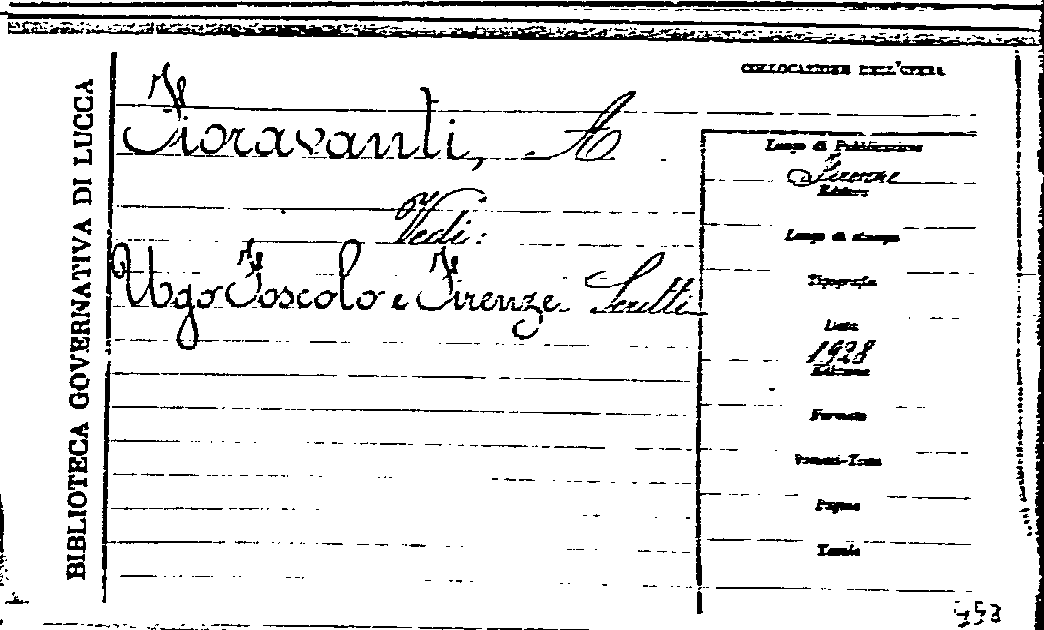 BIBLIOTECA GOVERNATIVA DI LUCCA
COLLOCAZIONE DELL'OPERA
Fioravanti, A
Vedi:
Ugo Foscolo e Firenze. Scritti
Luogo di Pubblicazione
Firenze
Editore
Luogo di stampa
Tipografia
Data
1928
Edizione
Formato
Volumi-Tomi
Pagine
Tavole